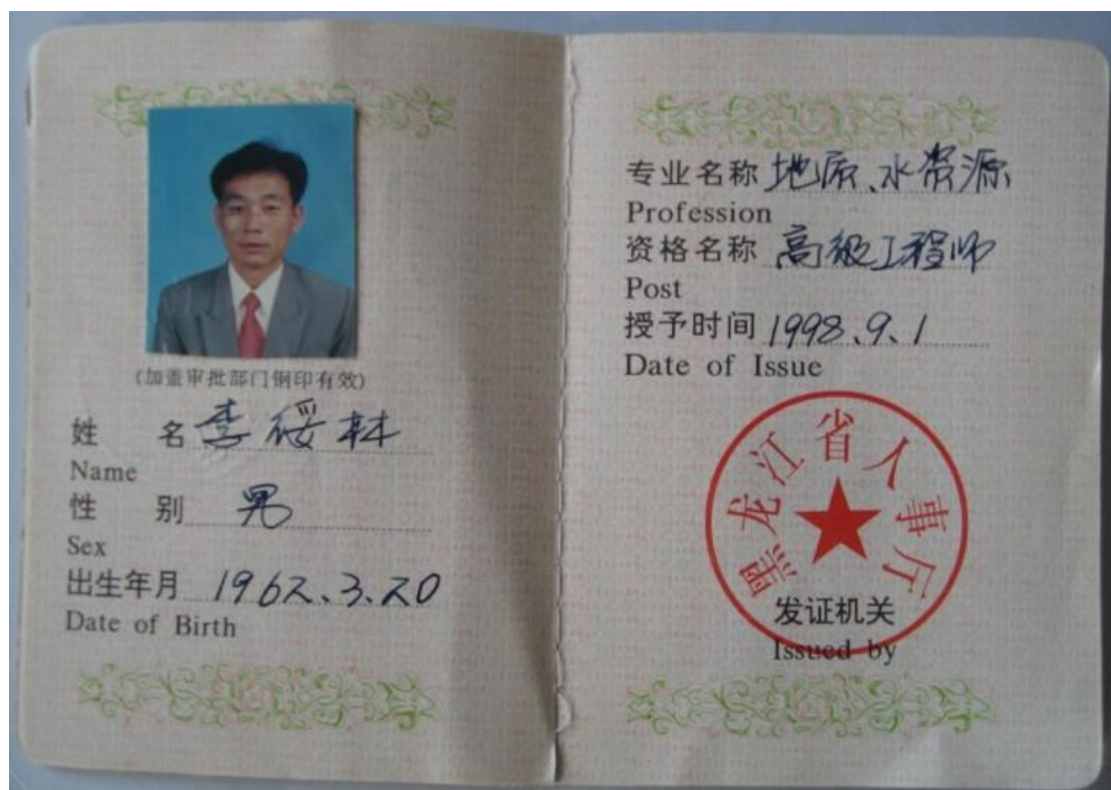 (加盖审批部门钢印有效)
姓 名 李绥林
Name
性 别 男
Sex
出生年月 1962、3、20
Date of Birth
专业名称 地质、水资源
Profession
资格名称 高级工程师
Post
授予时间 1998、9、1
Date of Issue
黑龙江省人事厅
发证机关
Issued by